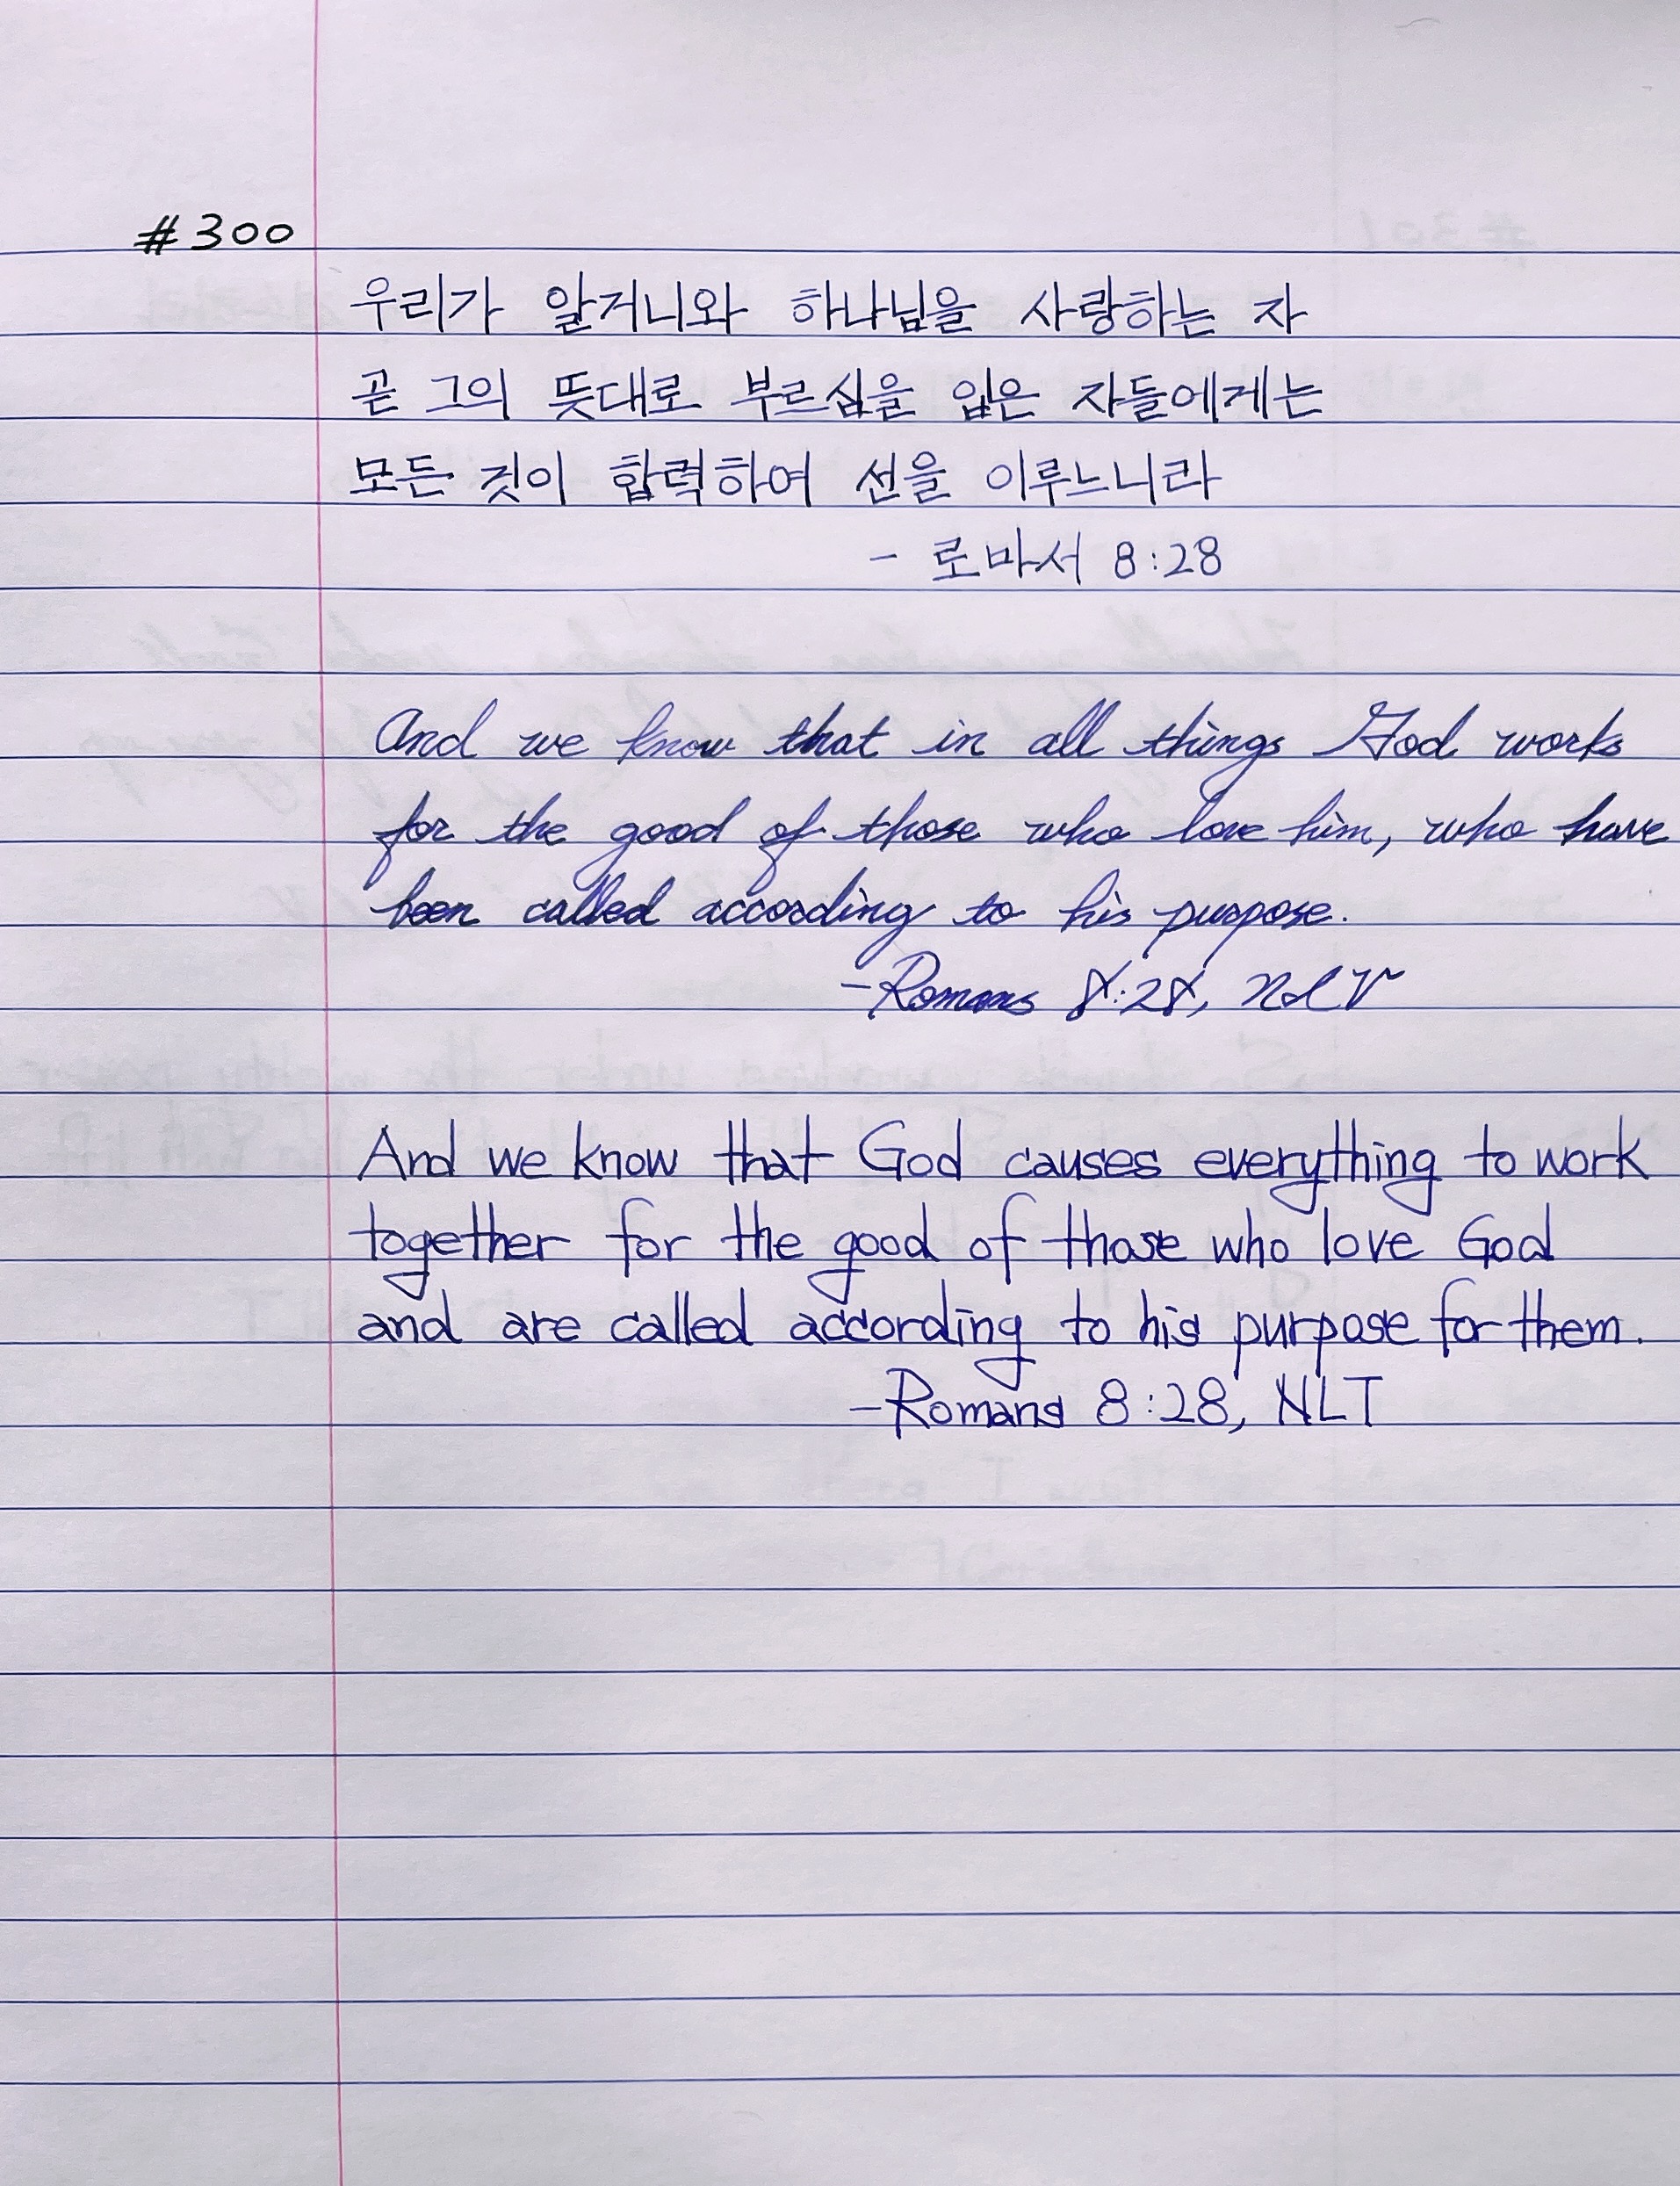 #300
우리가 알거니와 하나님을 사랑하는 자
곧 그의 뜻대로 부르심을 입은 자들에게는
모든 것이 합력하여 선을 이루느니라
- 로마서 8:28
And we know that in all things God works
for the good of those who love him, who have
been called according to his purpose.
-Romans 8:28, NIV
And we know that God causes everything to work
together for the good of those who love God
and are called according to his purpose for them.
-Romans 8:28, NLT